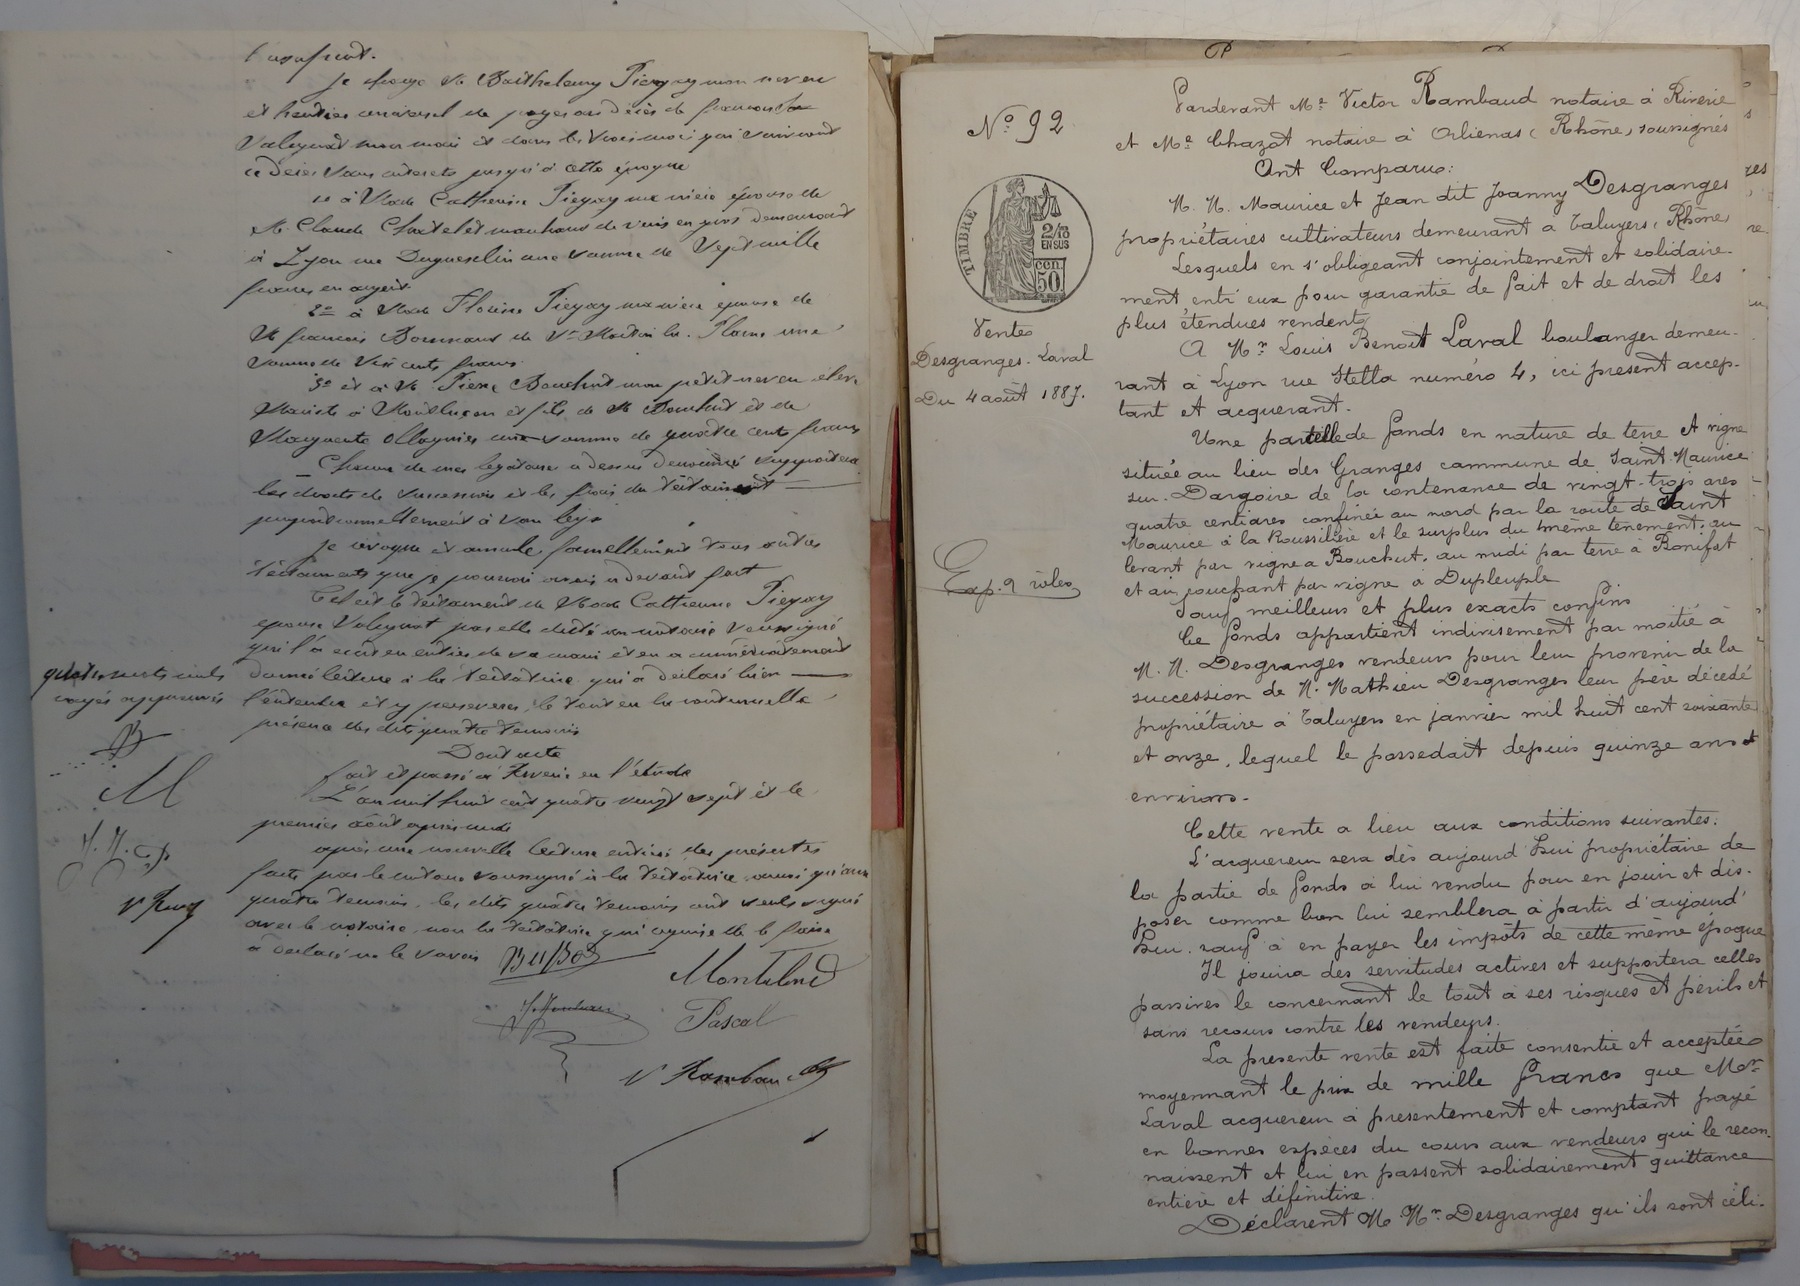 l'usufruit.
Je charge Mr Barthelemy Piegay mon neveu
et héritier universel de payer au décès de françois
Valeynat mon mari et dans les trois mois qui suivront
ce décès sans intérêts jusqu'à cette époque
1e à Made Catherine Piegay ma nièce épouse de
Mr Claude Chatelet marchand de vins en gros demeurant
à Lyon rue Duguesclin une somme de Sept mille
francs en argent
2e à Made Florine Piegay ma nièce épouse de
Mr françois Bonnand de St Martin la Plaine une
somme de cents francs
3e et à Mr Pierre Bouchut mon petit neveu élève
Mariste à Montluçon et fils de Mr Bouchut et de
Marguerite Ollagnier une somme de quatre cents francs
Chacun de mes légataires a dessus dénommés supportera
les droits de succession et les frais du testament
proportionnellement à son legs
Je révoque et annule formellement tous autres
testaments que je pourrai avoir a devant fait
Tel est le testament de Made Catherine Piegay
épouse Valeynat par elle dicté au notaire soussigné
qui l'a écrit en entier de sa main et en a immédiatement
donné lecture à la testatrice qui a déclaré bien
l'entendre et y persévérer, le tout en la continuelle
présence des dits quatre témoins
Dont acte
fait et passé à Riverie en l'étude
L'an mil huit cent quatre vingt sept et le
premier août après midi
après une nouvelle lecture entière des présentes
faite par le notaire soussigné à la testatrice, ainsi qu'aux
quatre témoins, les dits quatre témoins ont seuls signé
avec le notaire, non la testatrice qui requise de le faire
a déclaré ne le savoir
quatre mots nuls
rayés approuvés
B
M
Montelard
Pascal
V Rambaud
No 92
TIMBRE
2/10
EN SUS
CEN.
50
Vente
Desgranges-Laval
Du 4 août 1887.
Exp. 2 rôles
Pardevant Me Victor Rambaud notaire à Riverie
et Me Chazot notaire à Orliénas (Rhône) soussignés
Ont Comparus:
M. M. Maurice et Jean dit Joanny Desgranges
propriétaires cultivateurs demeurant a Taluyers (Rhône)
Lesquels en s'obligeant conjointement et solidaire
ment entr'eux pour garantie de fait et de droit les
plus étendues vendent
A Mr Louis Benoit Laval boulanger demeu-
rant à Lyon rue Stella numéro 4, ici present accep-
tant et acquerant.
Une parcelle de fonds en nature de terre et vigne
située au lieu des Granges commune de Saint Maurice
sur-Dargoire de la contenance de vingt-trois ares
quatre centiares confinée au nord par la route de Saint
Maurice à la Roussilière et le surplus du même tènement, au
levant par vigne a Bouchut, au midi par terre à Bonifat
et au couchant par vigne a Dupleuple
Sauf meilleurs et plus exacts confins
Ce fonds appartient indivisement par moitié à
M. M. Desgranges vendeurs pour leur provenir de la
succession de M. Mathieu Desgranges leur père décédé
propriétaire à Taluyers en janvier mil huit cent soixante
et onze, lequel le possedait depuis quinze ans
environ.
Cette vente a lieu aux conditions suivantes:
L'acquereur sera dès aujourd'hui propriétaire de
la partie de fonds à lui vendu pour en jouir et dis-
poser comme bon lui semblera à partir d'aujourd'
hui. sauf à en payer les impôts de cette même époque
Il jouira des servitudes actives et supportera celles
passives le concernant le tout à ses risques et périls et
sans recours contre les vendeurs.
La presente vente est faite consentie et acceptée
moyennant le prix de mille francs que Mr
Laval acquereur a presentement et comptant payé
en bonnes espèces du cours aux vendeurs qui le recon-
naissent et lui en passent solidairement quittance
entière et définitive.
Déclarent M Mrs Desgranges qu'ils sont céli-